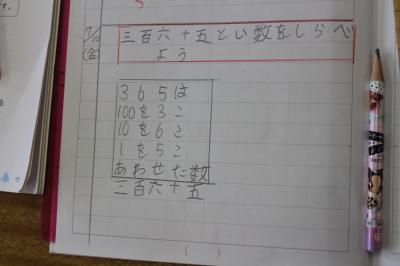 7/10
(金)
三百六十五とい数をしらべ
よう
365は
100を3こ
10を6こ
1を5こ
あわせた数
三百六十五
(　)